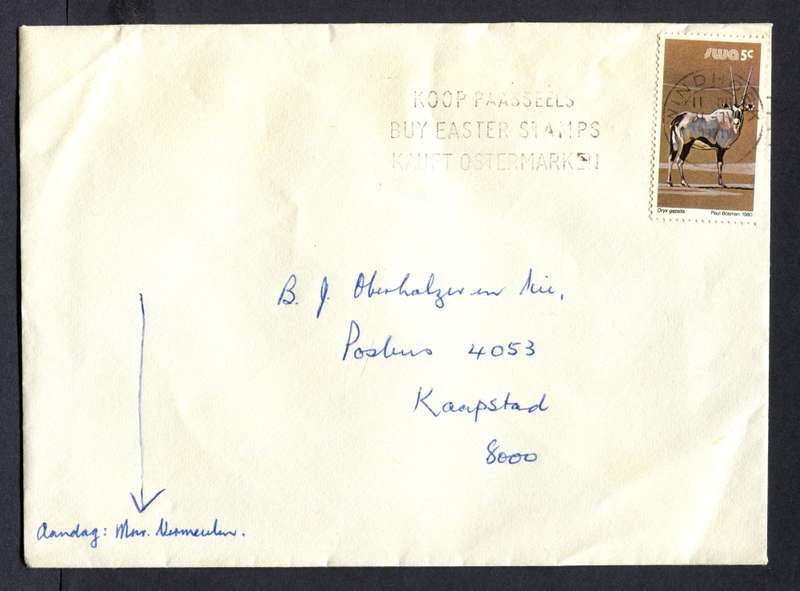 swa 5c
WINDH
KOOP PAASSEËLS
BUY EASTER STAMPS
KAUFT OSTERMARKEN
Oryx gazella Paul Bosman 1980
B. J. Oberholzer en Kie,
Posbus 4053
Kaapstad
8000
Aandag: Mnr. Vermeulen.